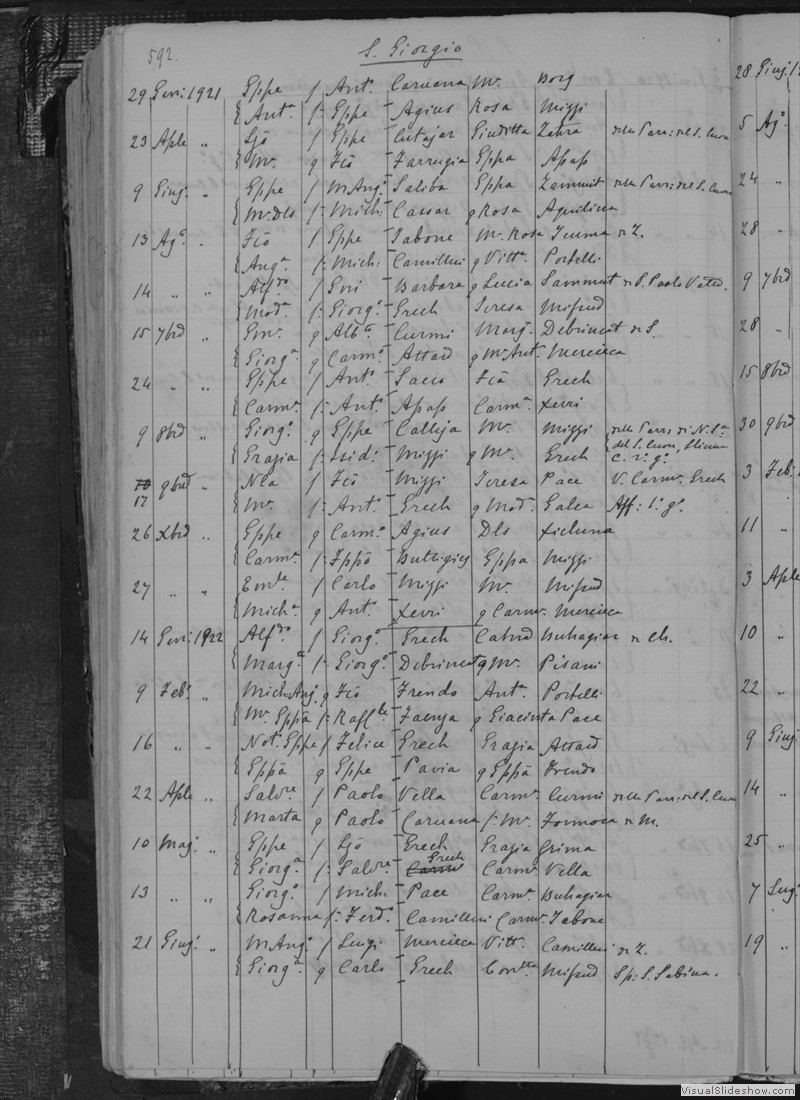 592.
S. Giorgio
29 Genn: 1921 Gppe f Ant. Caruana Mª Borg
{ Antª f: Gppe Agius Rosa Mizzi
23 Aple „ Ljō f Gppe Cutajar Giuditta Zahra della Parr: del S. Cuore
{ Mª q Fcō Farrugia Gppa Apap
9 Giug: „ Gppe f M. Ang: Saliba Gppa Zammit della Parr: del S. Cuore
{ M. Dls f: Mich: Cassar q Rosa Aquilina
13 Agº „ Fcō f Gppe Tabone Mª Rosa Teuma di Z.
{ Angª f: Mich: Camilleri q Vittª Portelli
14 „ „ Alfdo f Gni Barbara q Lucia Sammut di S. Paolo Valed.
{ Modª f: Giorgº Grech Teresa Mifsud
15 7brē Emº q Albª Curmi Margª Debrincat di S.
{ Giorgª q Carmº Attard q M. Ant. Mercieca
24 „ „ Gppe f Antº Sacco Fcā Grech
{ Carmª f: Antº Apap Carmª Xerri
9 8brē „ Giorgº q Gppe Calleja Mª Mizzi della Parr: di N. Sª
{ Grazia f: Isid: Mizzi q Mª Grech { del S. Cuore, Sliema
C. 2º gº
17 9brē „ Nla f Fcō Mizzi Teresa Pace V. Carmª Grech
{ Mª f: Ant. Grech q Modª Galea Aff: 1º gº
26 Xbrē „ Gppe q Carmº Agius Dls Xicluna
{ Carmª f: Fppō Buttigieg Gppa Mizzi
27 „ „ Emle f Carlo Mizzi Mª Mifsud
{ Michª q Antº Xerri q Carmª Mercieca
14 Genn: 1922 Alfdo f Giorgº Grech Catnā Buhagiar di Ch.
{ Margª f: Giorgº Debrincat q Mª Pisani
9 Febº „ Mich Ang: q Fcō Frendo Antª Portelli
{ Mª Gppā f: Raffle Faenza q Giacinta Pace
16 „ „ Not. Gppe f Felice Grech Grazia Attard
{ Gppā q Gppe Pavia q Gppā Frendo
22 Aple „ Salvre f Paolo Vella Carmª Curmi della Parr: del S. Cuore
{ Marta q Paolo Caruana f: Mª Formosa di M.
10 Mag: „ Gppe f Ljō Grech Grazia Grima
{ Giorgª f: Salvre Grech Carmª Vella
13 „ „ Giorgº f Mich: Pace Carmª Buhagiar
{ Rosanna f: Ferdº Camilleri Carmª Tabone
21 Giug: „ M. Ang: f Luigi Mercieca Vittª Camilleri di Z.
{ Giorgª q Carlo Grech Mifsud Sp: S. Sabina.
28 Giug:
5 Agº
24 „
28 „
9 7brē
28 „
15 8brē
30 9brē
3 Feb:
11 „
3 Aple
10 „
22 „
9 Giug:
14 „
25 „
7 Lug:
19 „
VisualSlideshow.com